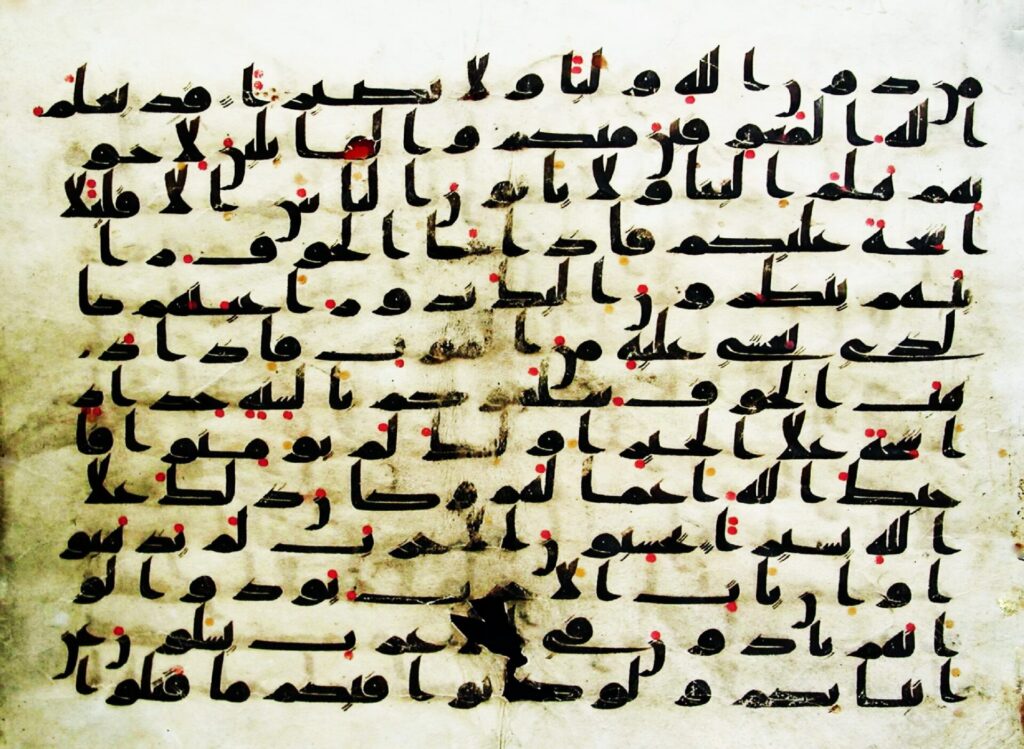 من دون الله وليا ولا نصيرا قد يعلم
الله المعوقين منكم والقايلين لاخو
نهم هلم الينا ولا ياتون الباس الا قليلا
اشحة عليكم فاذا جا الخوف را
يتهم ينظرون اليك تدور اعينهم كا
لذي يغشى عليه من الموت فاذا ذ
هب الخوف سلقوكم بالسنة حداد
اشحة علا الخير اوليك لم يومنوا فا
حبط الله اعمالهم وكان ذلك علا
الله يسيرا يحسبون الاحزب لم يذهبو
ا وان يات الاحزب يودوا لو
انهم بادون في الاعرب يسلون عن
انبايكم ولو كانوا فيكم ما قتلوا ا